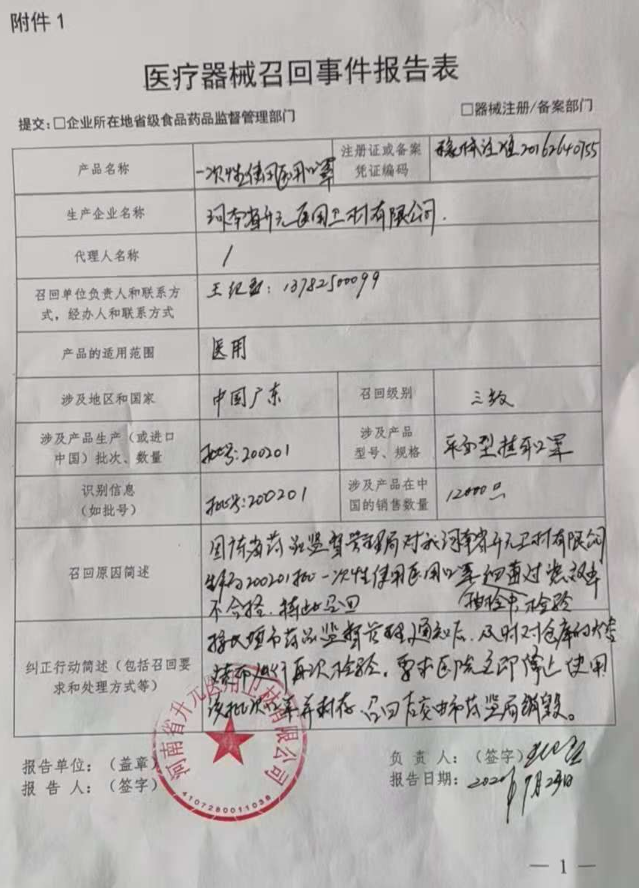 附件1
医疗器械召回事件报告表
提交:□企业所在地省级食品药品监督管理部门 □器械注册/备案部门
产品名称 一次性使用医用口罩 注册证或备案
凭证编码 豫械注准20162640755
生产企业名称 河南省升元医用卫材有限公司.
代理人名称 /
召回单位负责人和联系方
式,经办人和联系方式 王纪 : 13782500099
产品的适用范围 医用
涉及地区和国家 中国广东 召回级别 三级
涉及产品生产(或进口
中国)批次、数量 批号:200201 涉及产品
型号、规格 平面型挂耳口罩
识别信息
(如批号) 批号:200201 涉及产品在中
国的销售数量 12000只
召回原因简述
因广东省药品监督管理局对我河南省升元卫材有限公司
生产的200201批一次性使用医用口罩细菌过滤效率
不合格. 召回 抽检中 检验
纠正行动简述(包括召回要
求和处理方式等)
接长垣市药品监督管理 通知后,及时对仓库的
进行再次检验,要求医院立即停止使用
该批次口罩并封存,召回后交由市药监局销毁。
河南省升元医用卫材有限公司
4107280011038
报告单位:(盖章) 负责人:(签字)
报告人:(签字) 报告日期:2020年9月23日
— 1 —